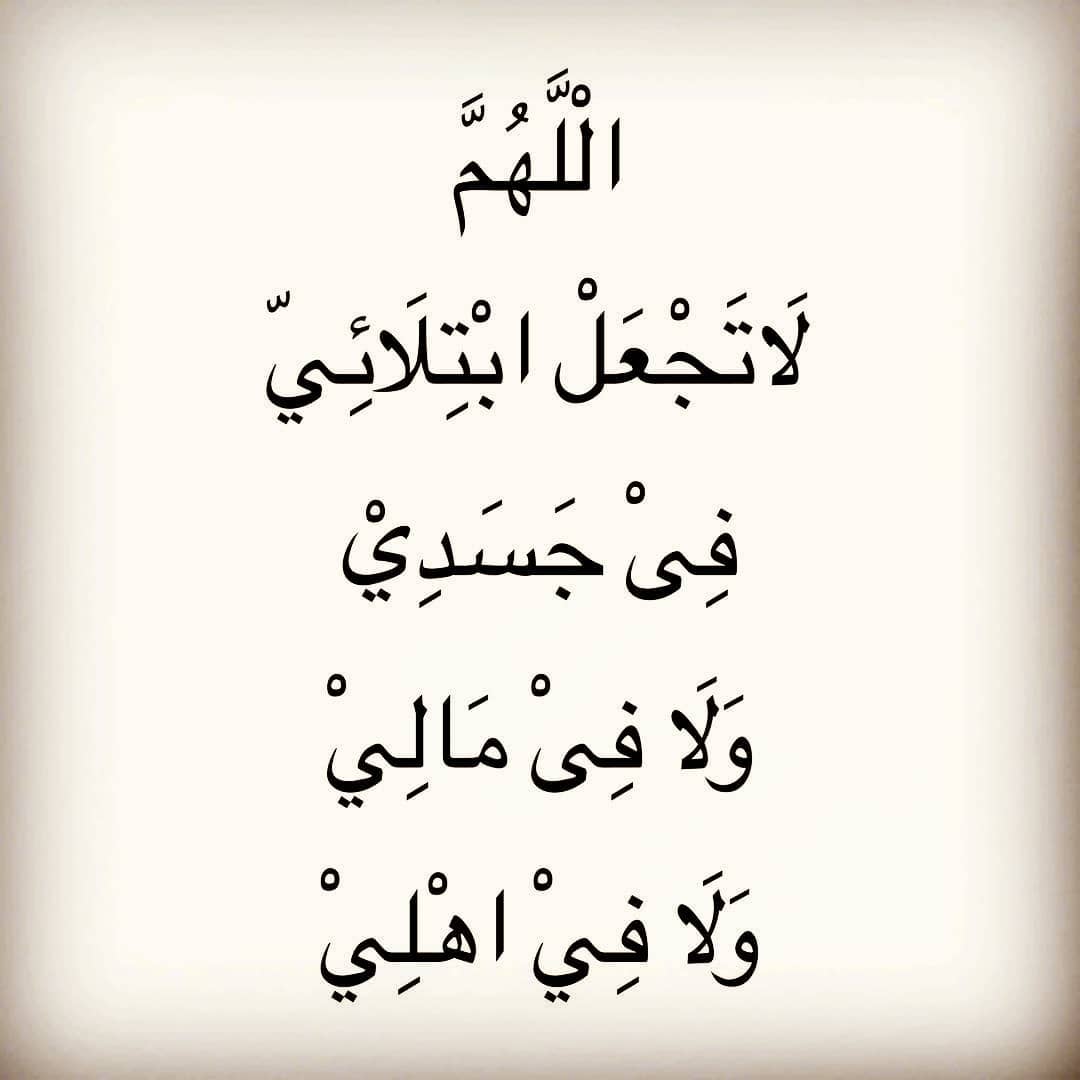 الْلَّهُمَّ
لَاتَجْعَلْ ابْتِلَائِيّ
فِىْ جَسَدِيْ
وَلَا فِىْ مَالِيْ
وَلَا فِيْ اهْلِيْ